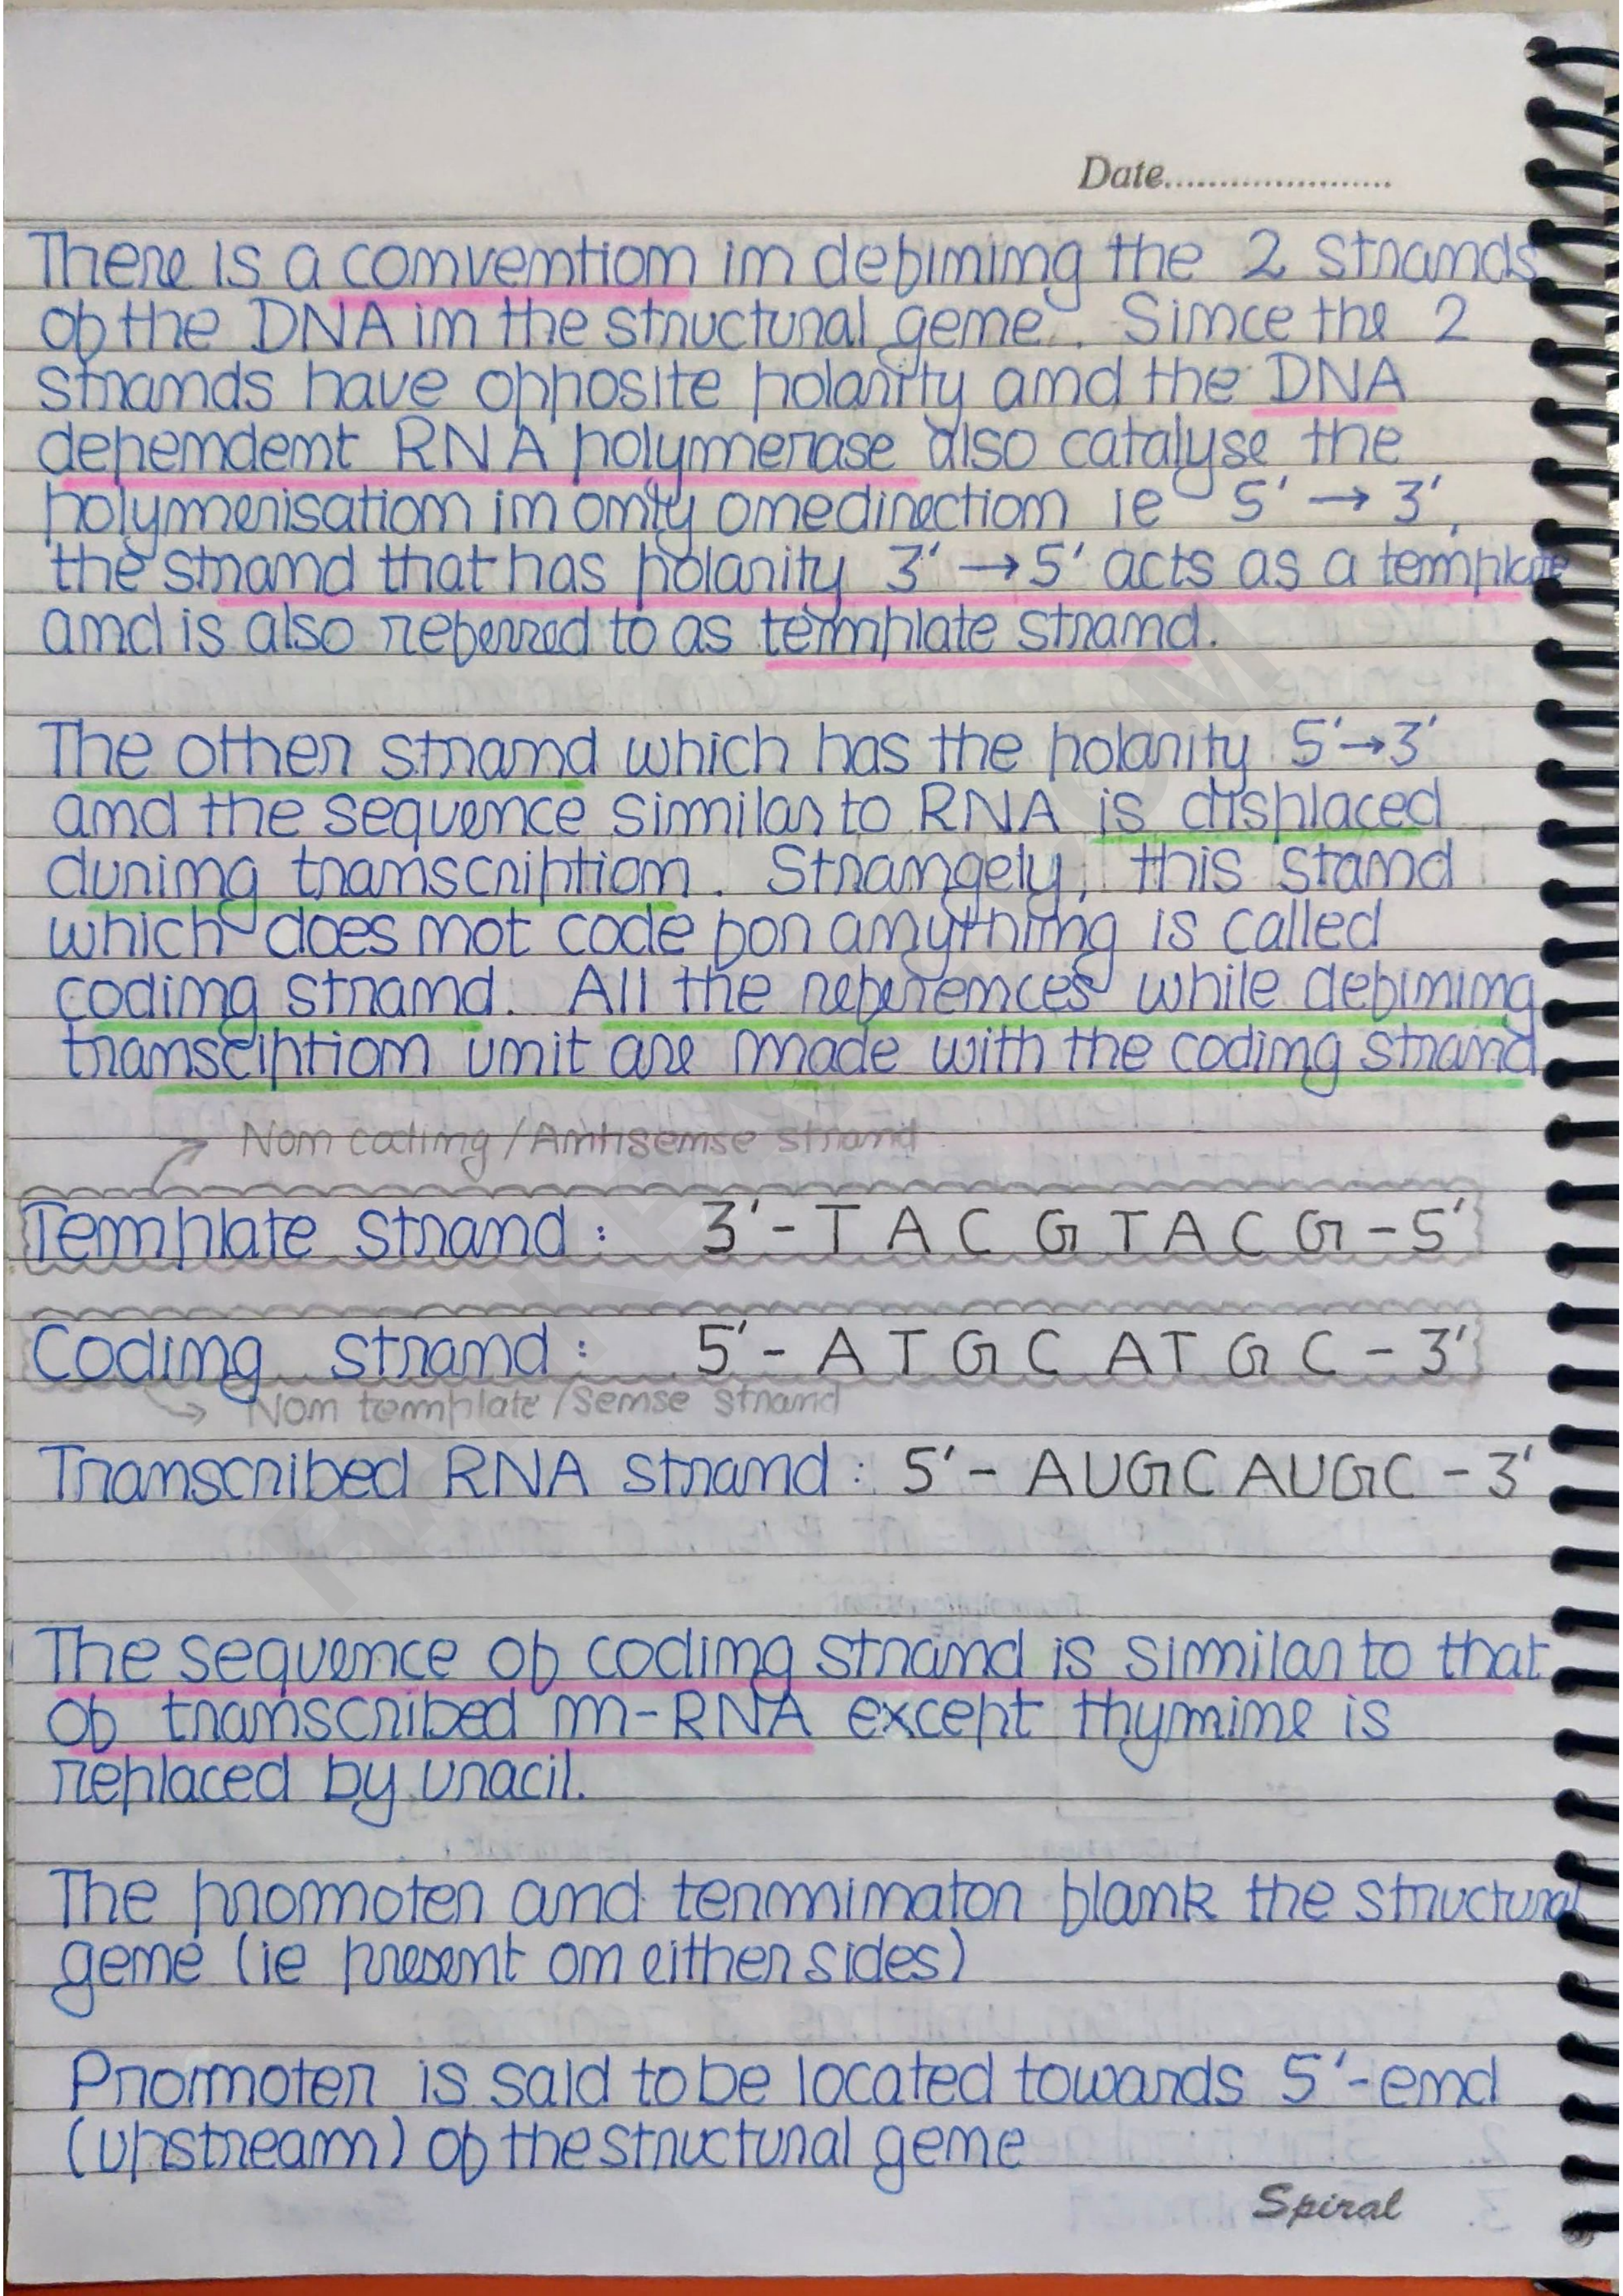 Date......................
There is a convention in defining the 2 strands
of the DNA in the structural gene. Since the 2
strands have opposite polarity and the DNA
dependent RNA polymerase also catalyse the
polymerisation in only one direction ie 5' → 3',
the strand that has polarity 3' → 5' acts as a template
and is also referred to as template strand.
The other strand which has the polarity 5' → 3'
and the sequence similar to RNA is displaced
during transcription. Strangely, this stand
which does not code for anything is called
coding strand. All the references while defining
transciption unit are made with the coding strand
Non coding / Antisense strand
Template strand : 3' - T A C G T A C G - 5'
Coding strand : 5' - A T G C A T G C - 3'
Non template / Sense strand
Transcribed RNA strand : 5' - AUGC AUGC - 3'
The sequence of coding strand is similar to that
of transcribed m-RNA except thymine is
replaced by uracil.
The promoter and terminator flank the structural
gene (ie present on either sides)
Promoter is said to be located towards 5'-end
(upstream) of the structural gene
Spiral